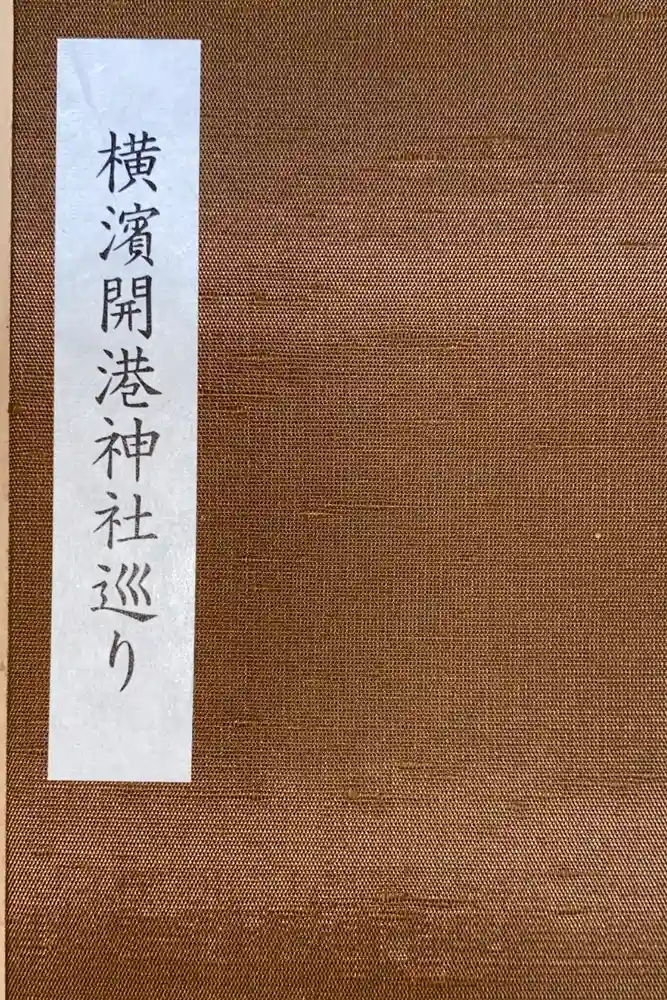 横濱開港神社巡り